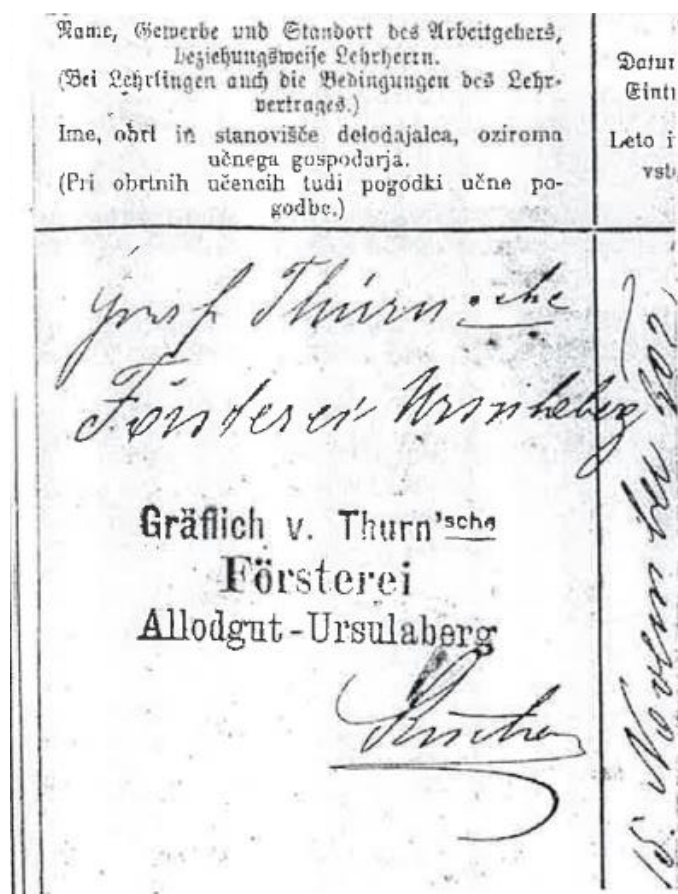 Name, Gewerbe und Standort des Arbeitgebers,
beziehungsweise Lehrherrn.
(Bei Lehrlingen auch die Bedingungen des Lehr-
vertrages.)
Ime, obrt in stanovišče delodajalca, oziroma
učnega gospodarja.
(Pri obrtnih učencih tudi pogodki učne po-
godbe.)
Datum
Eintr
Leto i
vst
Graf Thurn'sche
Försterei Ursulaberg
Gräflich v. Thurn'sche
Försterei
Allodgut-Ursulaberg
15. November 902